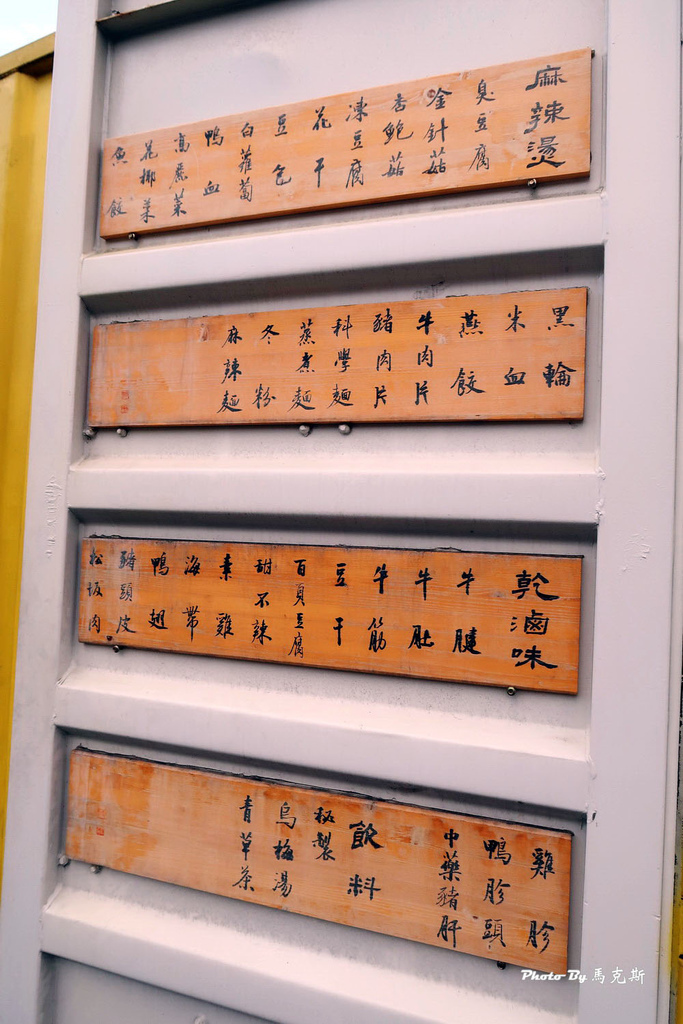 麻辣燙
臭豆腐
金針菇
杏鮑菇
凍豆腐
花干
豆包
白蘿蔔
鴨血
高麗菜
花椰菜
魚餃
黑輪
米血
燕餃
牛肉片
豬肉片
科學麵
蒸煮麵
冬粉
麻辣麵
乾滷味
牛腱
牛肚
牛筋
豆干
百頁豆腐
甜不辣
素雞
海帶
鴨翅
豬頭皮
松坂肉
雞胗
鴨胗頭
中藥豬肝
飲料
秘製
烏梅湯
青草茶
Photo By 馬克斯